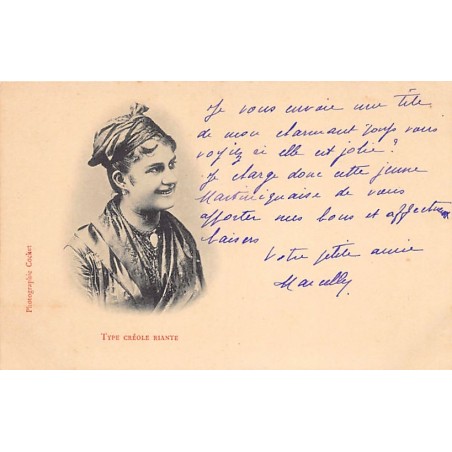 Je vous envoie une tête
de mon charmant vous
voyez si elle est jolie?
Je charge donc cette jeune
Martiniquaise de vous
apporter mes bons et affectueux
baisers
Votre petite amie
Marcelly
Photographie Cocket
TYPE CRÉOLE RIANTE